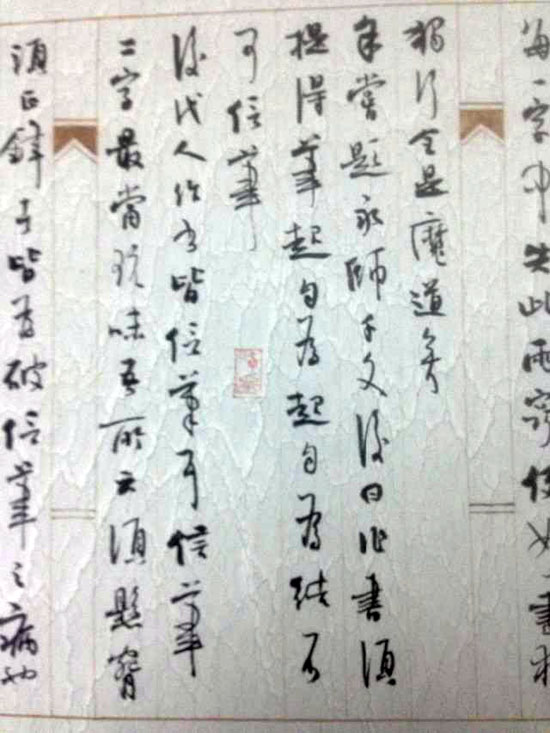 每一字中失此兩竅便如晝
獨行全是魔道矣
余嘗題永師千文後曰作書須
提得筆起自為起自為結不
可信筆
後代人作书皆信筆耳信筆
二字最當玩味吾所云須懸腕
須正鋒者皆為破信筆之病也